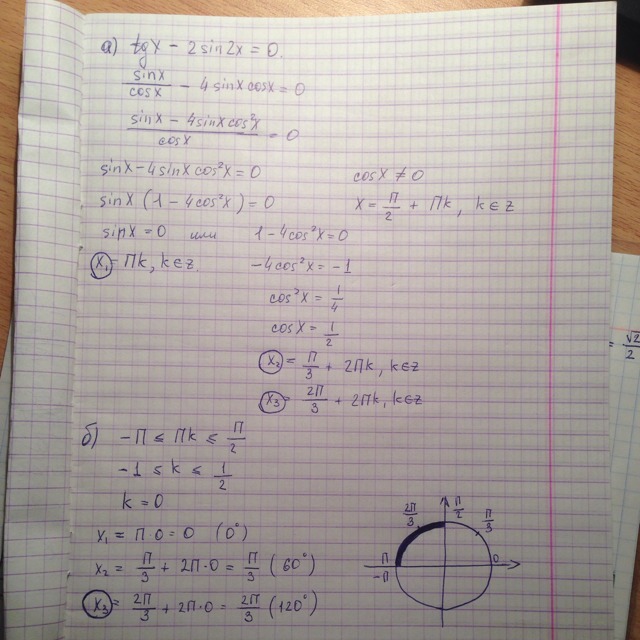 а) tgx − 2sin2x = 0.
sinx/cosx − 4sinxcosx = 0
(sinx − 4sinxcos²x)/cosx = 0
sinx − 4sinxcos²x = 0 cosx ≠ 0
sinx (1 − 4cos²x) = 0 x = П/2 + Пk, k∈z
sinx = 0 или 1 − 4cos²x = 0
x₁ = Пk, k∈z. −4cos²x = −1
cos²x = 1/4
cosx = 1/2
x₂ = П/3 + 2Пk, k∈z
x₃ = 2П/3 + 2Пk, k∈z
б) −П ≤ Пk ≤ П/2
−1 ≤ k ≤ 1/2
k = 0
x₁ = П·0 = 0 (0°)
x₂ = П/3 + 2П·0 = П/3 (60°)
x₃ = 2П/3 + 2П·0 = 2П/3 (120°)
2П/3 П/2 П/3
П 0
−П
= √2/2